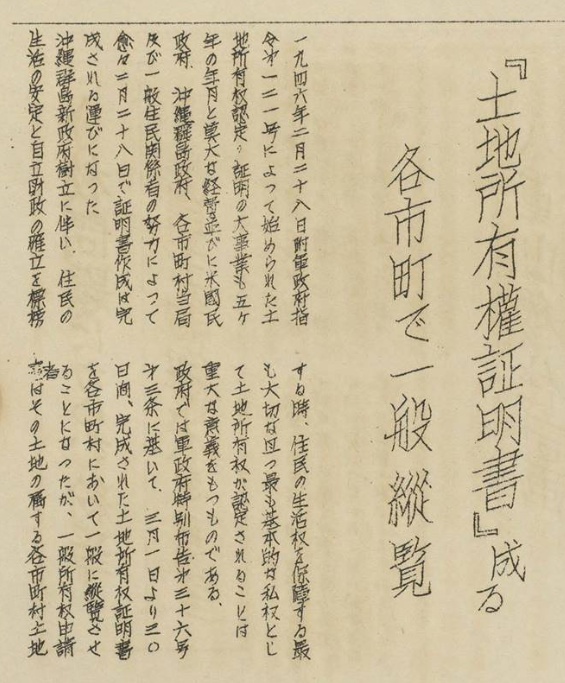 『土地所有權証明書』成る
各市町で一般縱覽
一九四六年二月二十八日附軍政府指
令才一二一号によって始められた土
地所有权認定、証明の大事業も五ヶ
年の年月と莫大な経費並びに米國民
政府、沖縄群島政府、各市町村当局
及び一般住民関係者の努力によって
愈々二月二十八日で証明書作成は完
成される運びになった
沖縄群島新政府樹立に伴い、住民の
生活の安定と自立財政の確立を標榜
する時、住民の生活权を保障する最
も大切な且つ最も基本的な私权とし
て土地所有权が認定されることは
重大な意義をもつものである、
政府では軍政府特別布告才三十六号
才三条に基いて、三月一日より三〇
日間、完成された土地所有权証明書
を各市町村において一般に縱覽させ
ることになったが、一般所有权申請
者はその土地の属する各市町村土地